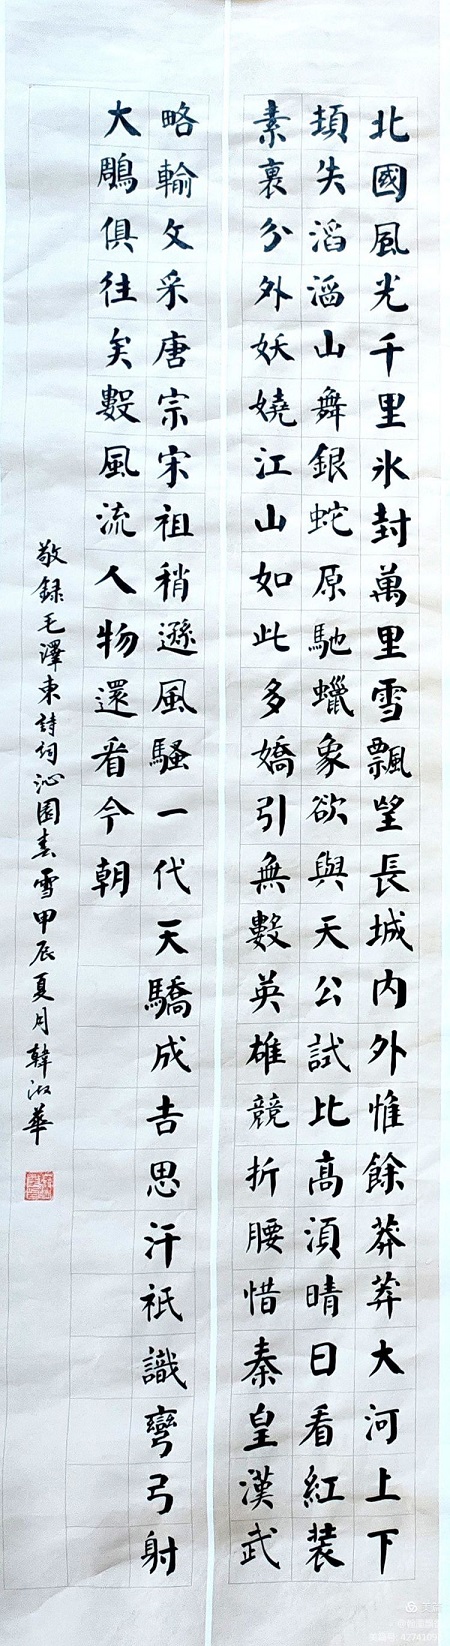 北國風光千里氷封萬里雪飄望長城内外惟餘莽莽大河上下
頓失滔滔山舞銀蛇原馳蠟象欲與天公試比高須晴日看紅装
素裏分外妖嬈江山如此多嬌引無數英雄競折腰惜秦皇漢武
略輸文采唐宗宋祖稍遜風騷一代天驕成吉思汗祇識彎弓射
大鵰俱往矣數風流人物還看今朝
敬録毛澤東詩詞沁園春雪甲辰夏月韓淑華